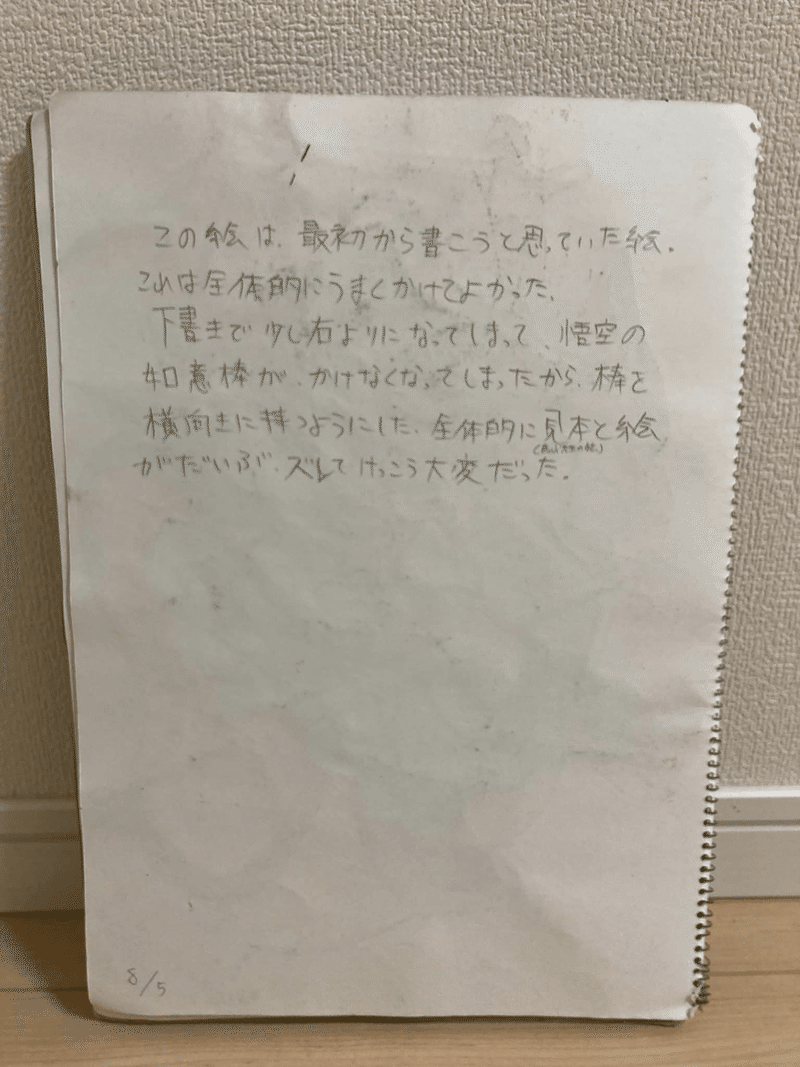 この絵は、最初から書こうと思っていた絵。
これは全体的にうまくかけてよかった。
下書きで少し右よりになってしまって、悟空の
如意棒が、かけなくなってしまったから、棒を
横向きに持つようにした。全体的に見本と絵
がだいぶ、ズレてけっこう大変だった。
8/5